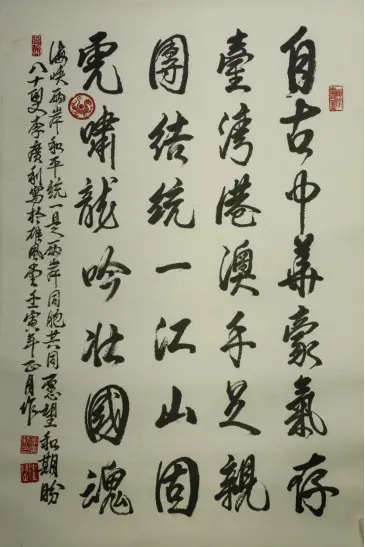 自古中華豪氣存
臺灣港澳手足親
團結統一江山固
虎嘯龍吟壯國魂
海峽兩岸和平統一是兩岸同胞共同愿望和期盼
八十叟李廣利寫於雄風堂壬寅年正月作